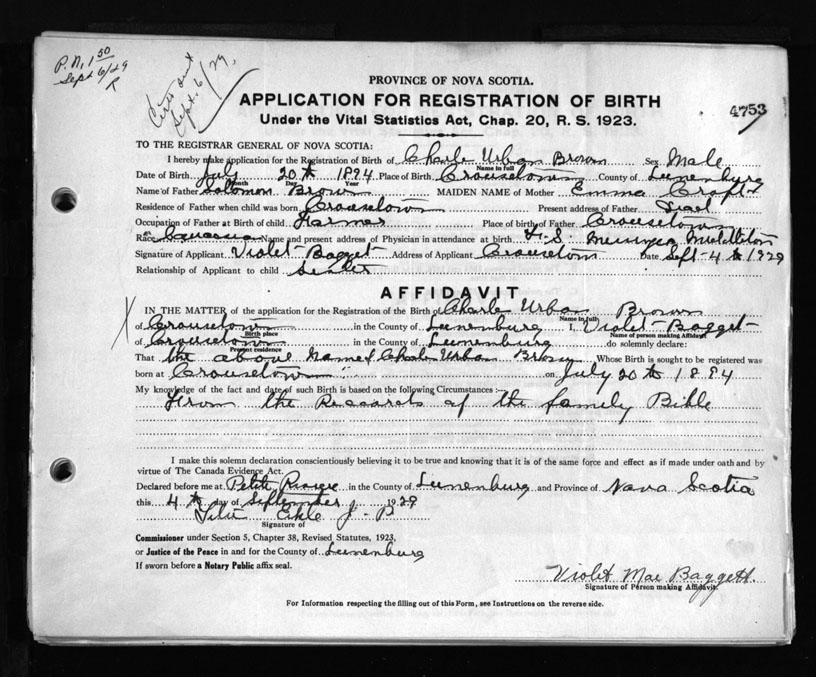 P.N. 1 50
Sept 6/29
Sept. 6/29,
PROVINCE OF NOVA SCOTIA.
APPLICATION FOR REGISTRATION OF BIRTH
4753
Under the Vital Statistics Act, Chap. 20, R. S. 1923.
TO THE REGISTRAR GENERAL OF NOVA SCOTIA:
I hereby make application for the Registration of Birth of Charle Urban Brown Sex Male
Name in full
Date of Birth July 20th 1894 Place of Birth Crousetown County of Lunenburg
Month Day Year
Name of Father Solomon Brown MAIDEN NAME of Mother Emma Croft
Residence of Father when child was born Crousetown Present address of Father
Occupation of Father at Birth of child Farmer Place of birth of Father Crousetown
Race Name and present address of Physician in attendance at birth Middleton
Signature of Applicant Violet Bagget Address of Applicant Crousetown Date Sept-4th 1929
Relationship of Applicant to child
AFFIDAVIT
IN THE MATTER of the application for the Registration of the Birth of Charle Urban Brown
Name in full
of Crousetown in the County of Lunenburg I, Violet Bagget
Birth place Name of person making Affidavit
of Crousetown in the County of Lunenburg do solemnly declare:
Present residence
That the above named Charle Urban Brown Whose Birth is sought to be registered was
born at Crousetown on July 20th 1894
My knowledge of the fact and date of such Birth is based on the following Circumstances :—
From the Reccorets of the family Bible
I make this solemn declaration conscientiously believing it to be true and knowing that it is of the same force and effect as if made under oath and by
virtue of The Canada Evidence Act.
Declared before me at Petite Riviere in the County of Lunenburg and Province of Nova Scotia
this 4th day of September 1929
J. P
Signature of
Commissioner under Section 5, Chapter 38, Revised Statutes, 1923,
or Justice of the Peace in and for the County of Lunenburg
If sworn before a Notary Public affix seal.
Violet Mae Baggett.
Signature of Person making Affidavit.
For Information respecting the filling out of this Form, see Instructions on the reverse side.